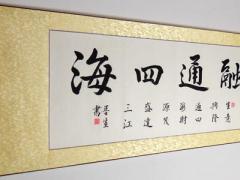 融通四海
生意
興隆
通四
海財
源茂
盛達
三江
書